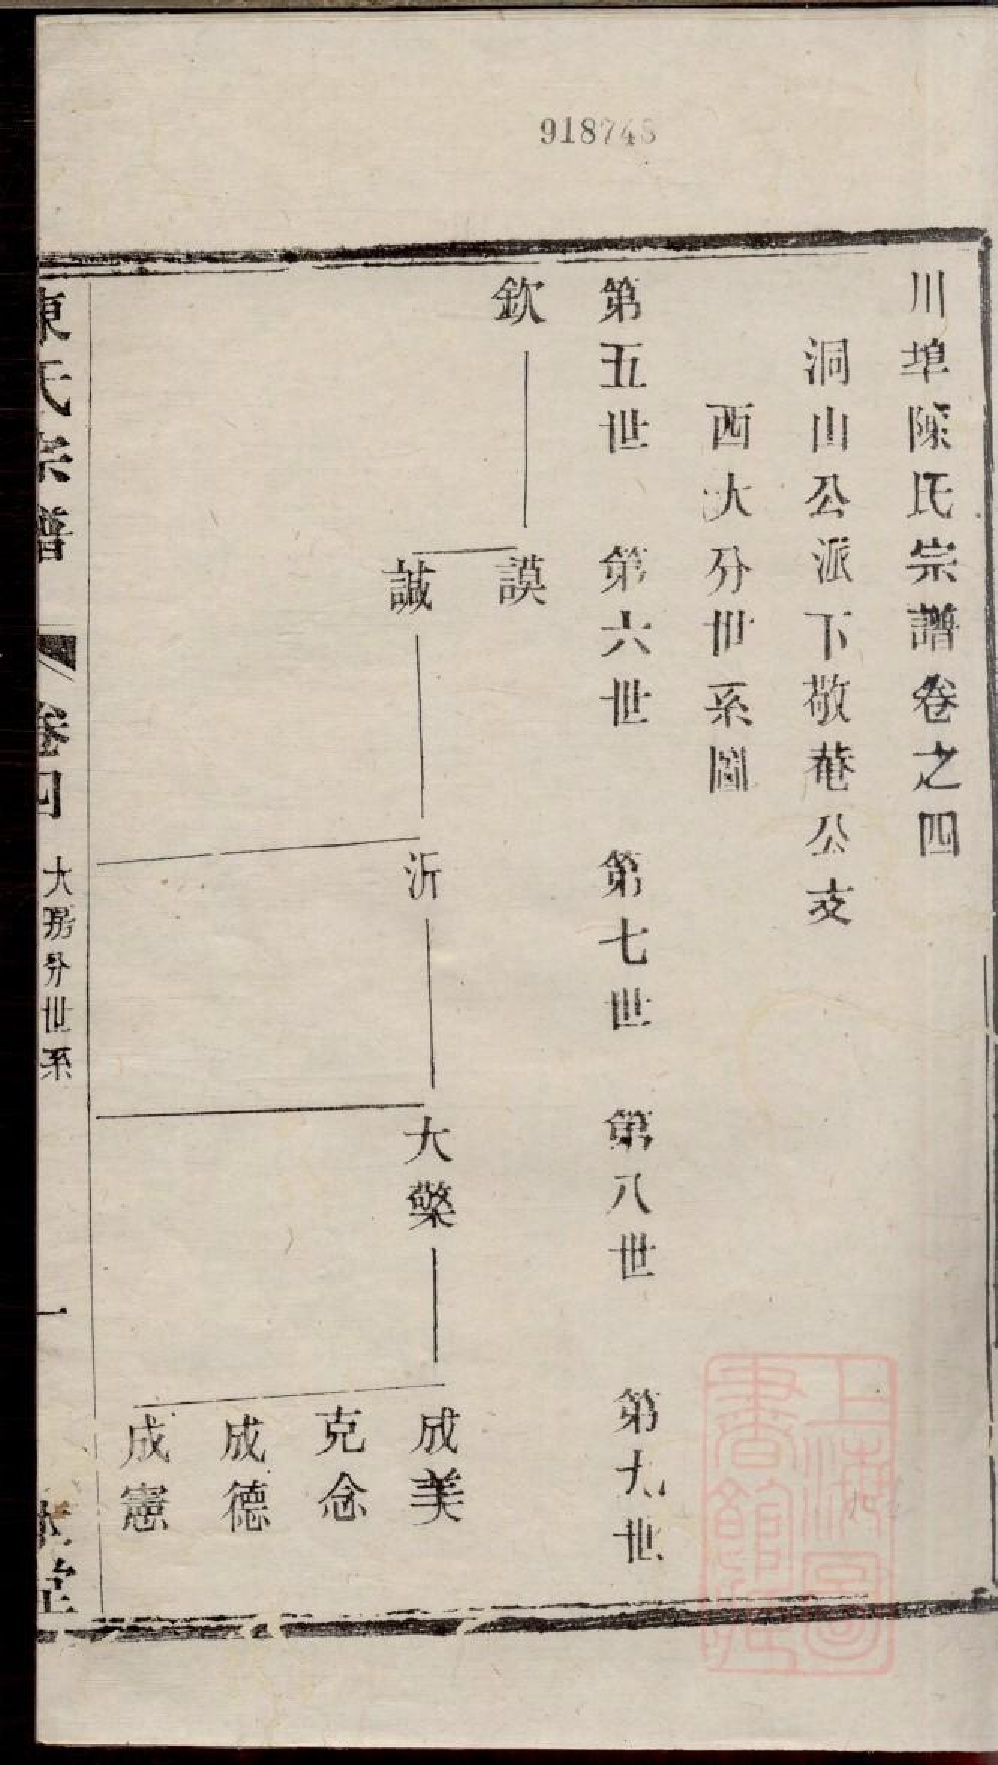 918748
川埠陳氏宗譜卷之四
洞山公派下敬菴公支
西大分世系圖
第五世 第六世 第七世 第八世 第九世
欽 謨
誠 沂 大檠 成美
克念
成德
成憲
陳氏宗譜 卷四 大房分世系 一
上海圖書館藏